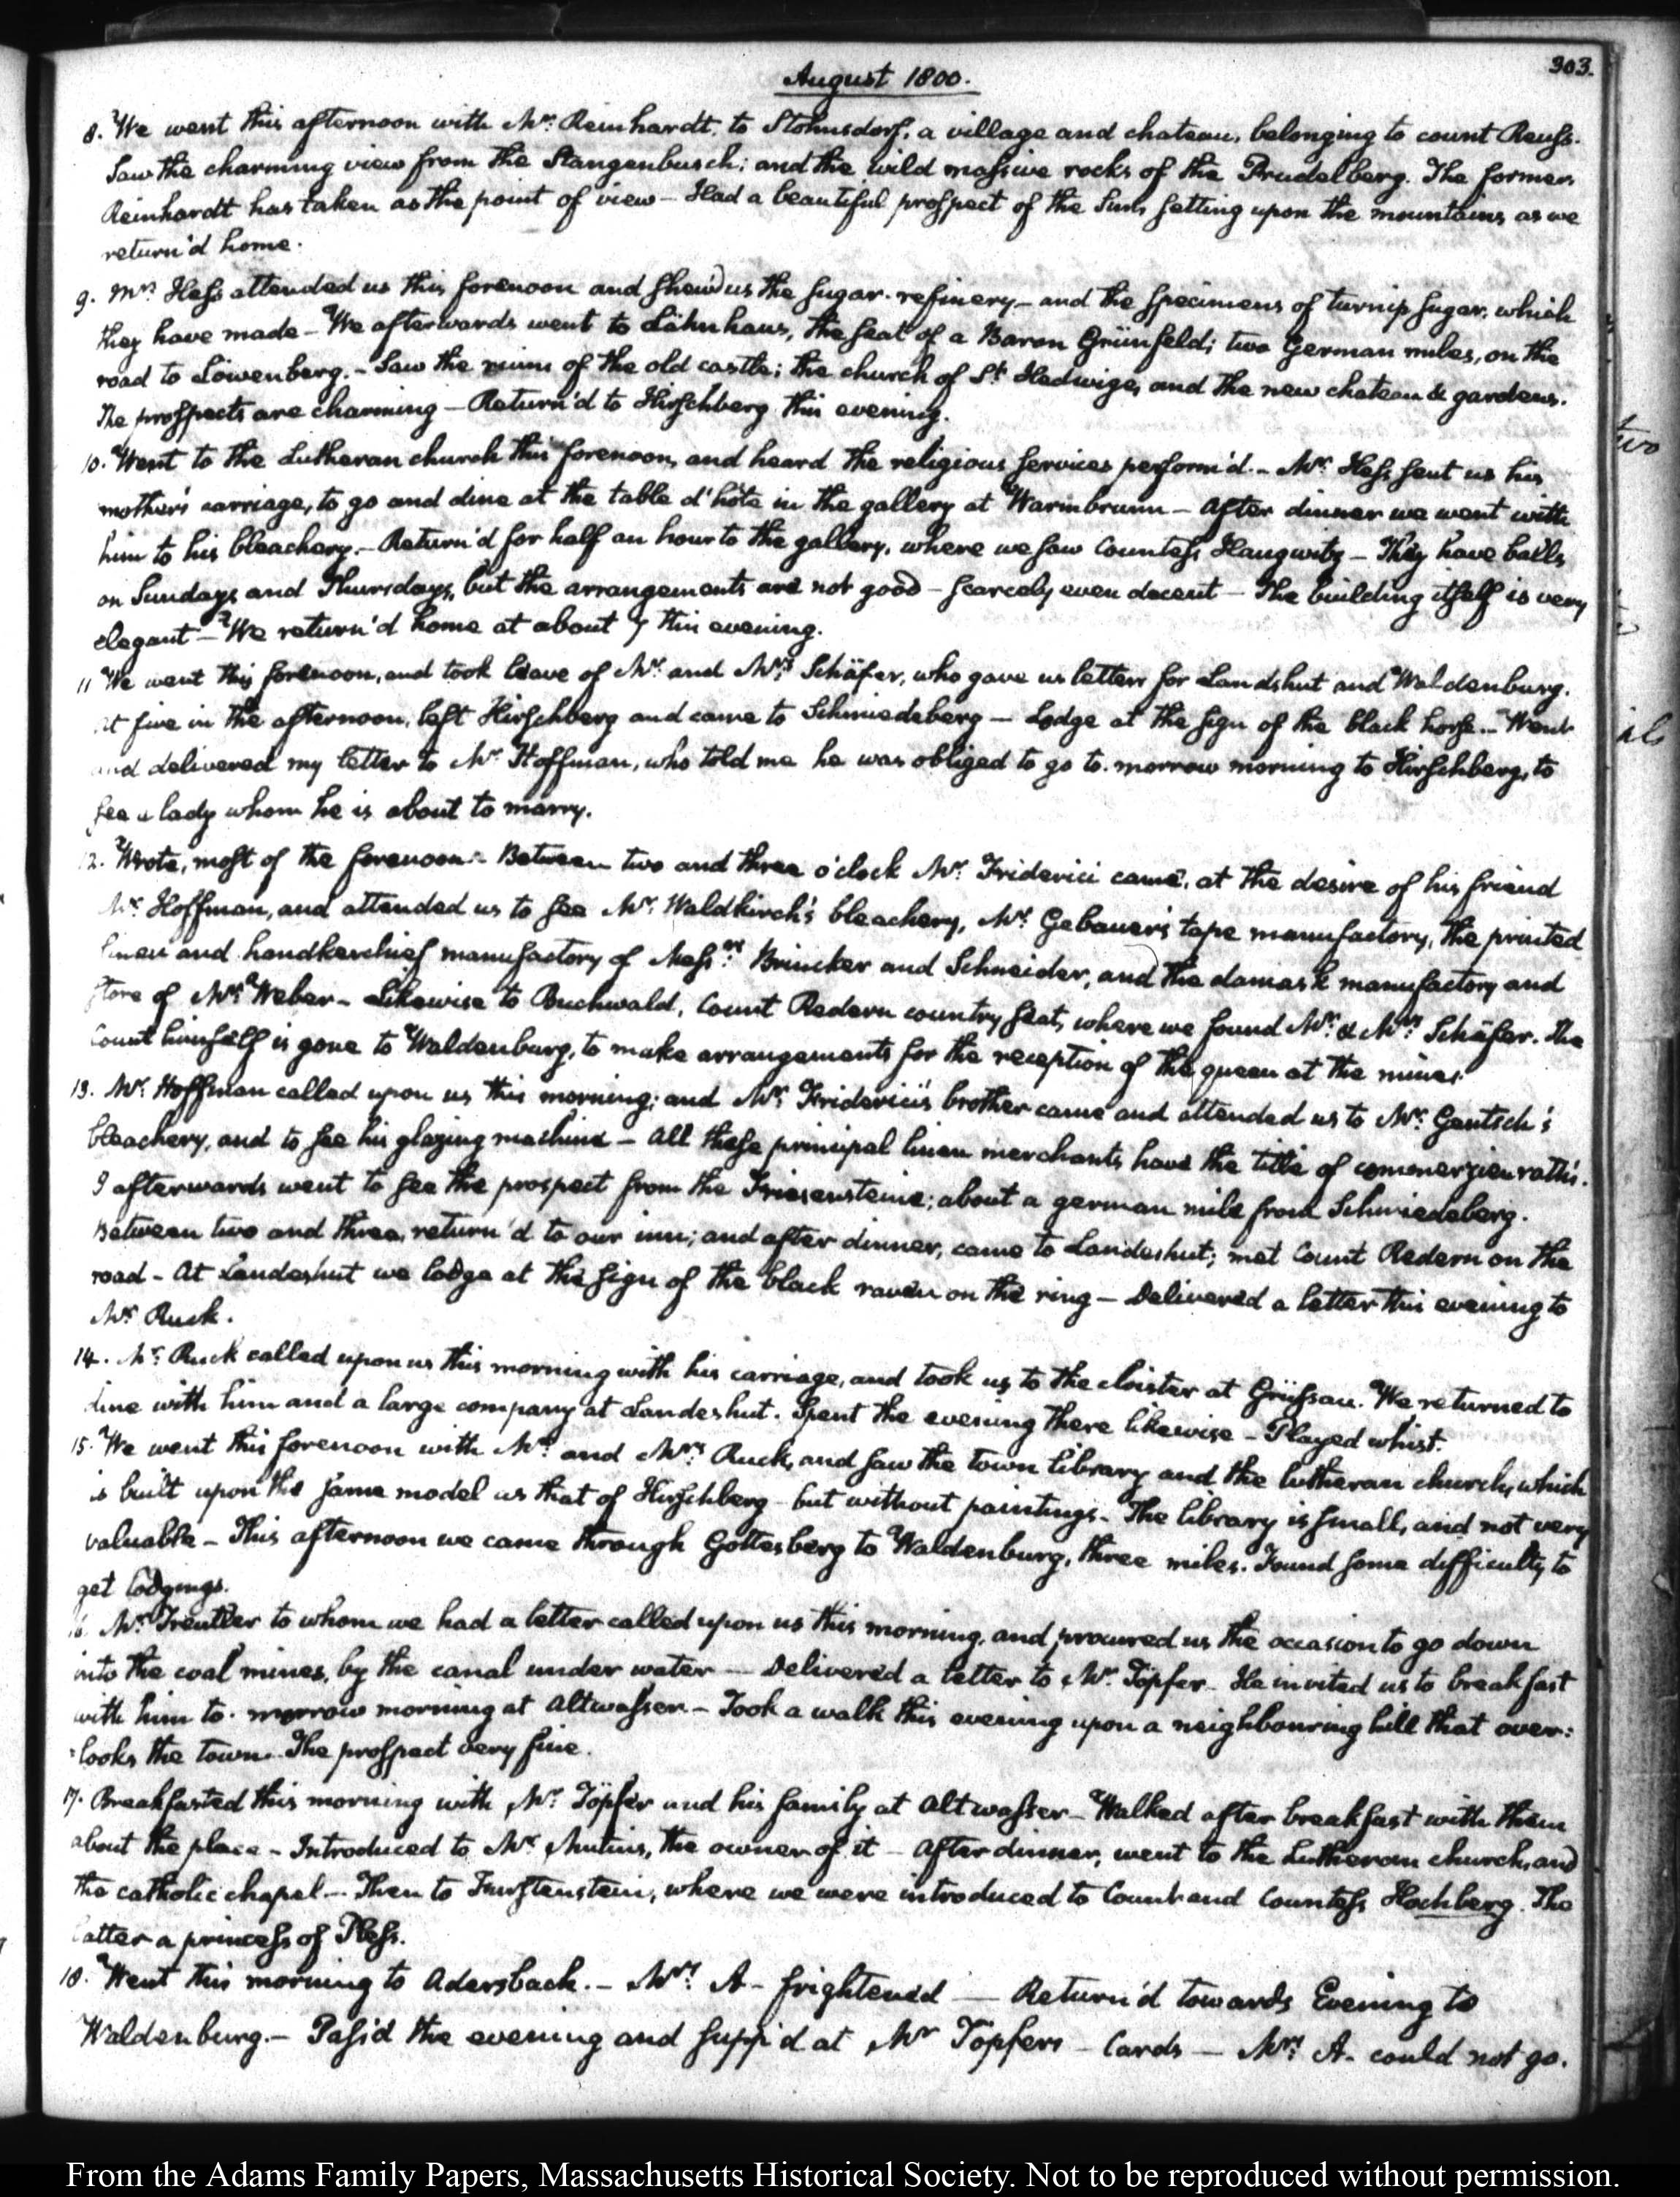 303.
August 1800.
8. We went this afternoon with Mr. Reinhardt, to Stohnsdorf, a village and chateau, belonging to count Reuss.
Saw the charming view from the Stangenbusch; and the wild massive rocks of the Prudelberg. The former
Reinhardt has taken as the point of view — Had a beautiful prospect of the Sun setting upon the mountains as we
return'd home.
9. Mr. Hess attended us this forenoon and shew'd us the sugar-refinery — and the specimens of turnip sugar, which
they have made — We afterwards went to Lähnhaus, the seat of a Baron Grünfeld; two German miles, on the
road to Löwenberg. — Saw the ruins of the old castle; the church of St. Hedwige, and the new chateau & gardens.
The prospects are charming — Return'd to Hirschberg this evening.
10. Went to the Lutheran church this forenoon, and heard the religious services perform'd. — Mr. Hess sent us his
mother's carriage, to go and dine at the table d'hôte in the gallery at Warmbrunn — After dinner we went with
him to his bleachery. — Return'd for half an hour to the gallery, where we saw Countess Haugwitz — They have balls
on Sundays and Thursdays, but the arrangements are not good — scarcely even decent — The building itself is very
elegant — We return'd home at about 7 this evening.
11 We went this forenoon, and took leave of Mr. and Mrs. Schäfer, who gave us letters for Landshut and Waldenburg.
At five in the afternoon, left Hirschberg and came to Schmiedeberg — Lodge at the sign of the black horse. — Went
and delivered my letter to Mr. Hoffman, who told me he was obliged to go to-morrow morning to Hirschberg, to
see a lady whom he is about to marry.
12. Wrote, most of the forenoon — Between two and three o'clock Mr. Friderici came, at the desire of his friend
Mr. Hoffman, and attended us to see Mr. Waldkirch's bleachery, Mr. Gebauer's tape manufactory, the printed
linen and handkerchief manufactory of Messrs. Brincker and Schneider, and the damask manufactory and
store of Mr. Weber — Likewise to Buchwald, Count Redern country seat, where we found Mr. & Mrs. Schäfer. The
Count himself is gone to Waldenburg, to make arrangements for the reception of the queen at the mines.
13. Mr. Hoffman called upon us this morning; and Mr. Friderici's brother came and attended us to Mr. Gentsch's
bleachery, and to see his glazing machine — All these principal linen merchants have the title of commerzienraths.
I afterwards went to see the prospect from the Friesensteine; about a german mile from Schmiedeberg.
Between two and three, return'd to our inn; and after dinner, came to Landeshut; met Count Redern on the
road — At Landeshut we lodge at the sign of the black raven on the ring — Delivered a letter this evening to
Mr. Ruck.
14. Mr. Ruck called upon us this morning with his carriage, and took us to the cloister at Grüssau. We returned to
dine with him and a large company at Landeshut. Spent the evening there likewise — Played whist.
15. We went this forenoon with Mr. and Mrs. Ruck, and saw the town library and the lutheran church, which
is built upon the same model as that of Hirschberg — but without paintings — The library is small, and not very
valuable — This afternoon we came through Gottesberg to Waldenburg, three miles. Found some difficulty to
get lodgings.
16. Mr. Treutler to whom we had a letter called upon us this morning, and procured us the occasion to go down
into the coal mines, by the canal under water — Delivered a letter to Mr. Töpfer — He invited us to breakfast
with him to-morrow morning at Altwasser — Took a walk this evening upon a neighbouring hill that over:
:looks the town. The prospect very fine.
17. Breakfasted this morning with Mr. Töpfer and his family at Altwasser — Walked after breakfast with them
about the place — Introduced to Mr. Mutius, the owner of it — After dinner, went to the Lutheran church, and
the catholic chapel — Then to Furstenstein, where we were introduced to Count and Countess Hochberg. The
latter a princess of Pless.
18. Went this morning to Adersback. — Mrs. A — frightened — Return'd towards Evening to
Waldenburg. — Pass'd the evening and supp'd at Mr Töpfers — Cards — Mrs. A. could not go.
two
als
From the Adams Family Papers, Massachusetts Historical Society. Not to be reproduced without permission.